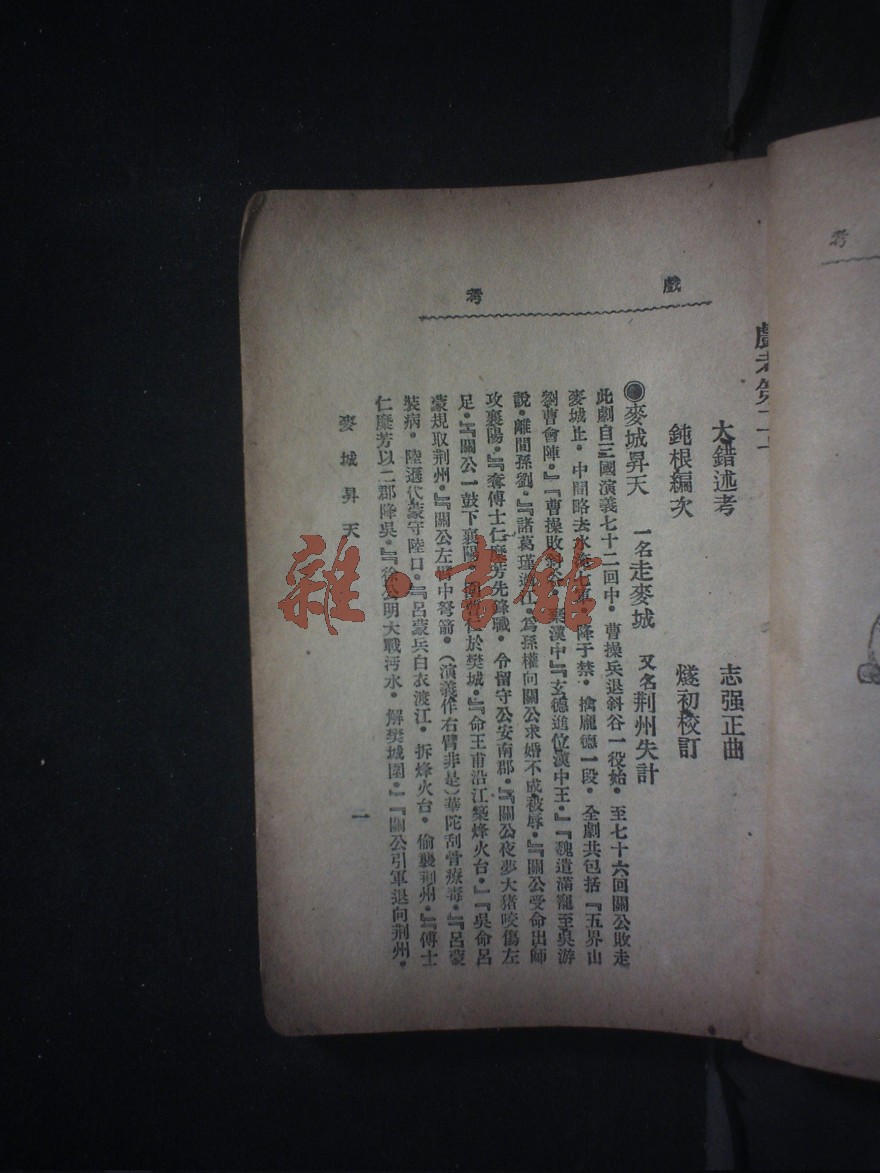 戲考
戲考第二十
大錯述考 志强正曲
鈍根編次 燧初校訂
●麥城昇天 一名走麥城 又名荆州失計
此劇自三國演義七十二回中・曹操兵退斜谷一役始・至七十六回關公敗走
麥城止・中間略去水淹七軍・降于禁・擒龐德一段・全劇共包括『五界山
劉曹會陣・』『曹操敗斜谷・棄漢中』『玄德進位漢中王・』『魏遣滿寵至吳游
說・離間孫劉・』『諸葛瑾過江・爲孫權向關公求婚不成被辱・』『關公受命出師
攻襄陽・』『奪傅士仁糜芳先鋒職・令留守公安南郡・』『關公夜夢大猪咬傷左
足・』『關公一鼓下襄陽・ 於樊城・』『命王甫沿江築烽火台・』『吳命呂
蒙規取荆州・』『關公左臂中弩箭・(演義作右臂非是)華陀刮骨療毒・』『呂蒙
裝病・陸遜代蒙守陸口・』『呂蒙兵白衣渡江・拆烽火台・偷襲荆州・』『傅士
仁糜芳以二郡降吳・』『徐公明大戰沔水・解樊城圍・』『關公引軍退向荆州・
麥城昇天
一
雜・書館
考